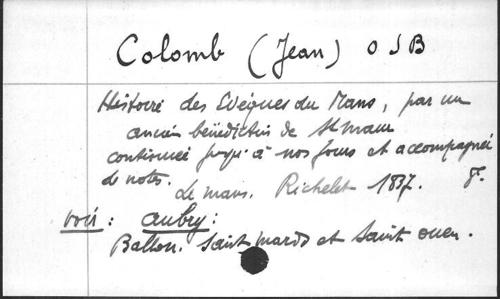 Colomb (Jean) OSB
Histoire des Evêques du Mans, par un
ancien bénédictin de St maur
continuée jusqu'à nos jours et accompagnée
de notes. Le mans. Richelet 1837. 8°.
voir : aubry :
Ballon. Saint mards et Saint ouen.